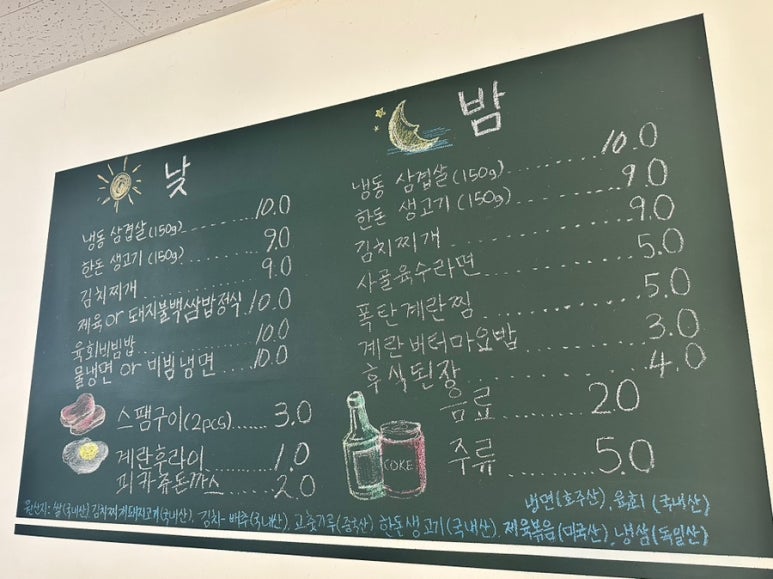 낮
냉동 삼겹살(150g)........10.0
한돈 생고기(150g)........9.0
김치찌개 9.0
제육or 돼지불백쌈밥정식.10.0
육회비빔밥..............10.0
물냉면 or 비빔냉면....10.0
스팸구이(2pcs)......3.0
계란후라이.........1.0
피카츄돈까스......2.0
밤
냉동 삼겹살(150g)............10.0
한돈 생고기(150g)............9.0
김치찌개.....................9.0
사골육수라면.................5.0
폭탄계란찜...................5.0
계란버터마요밥...............3.0
후식된장.....................4.0
음료..........20
주류..........5.0
COKE
냉면(호주산), 육회(국내산)
원산지- 쌀(국내산) 김치찌개돼지고기(국내산), 김치-배추(국내산), 고춧가루(중국산) 한돈생고기(국내산), 제육볶음(미국산), 냉삼(독일산)